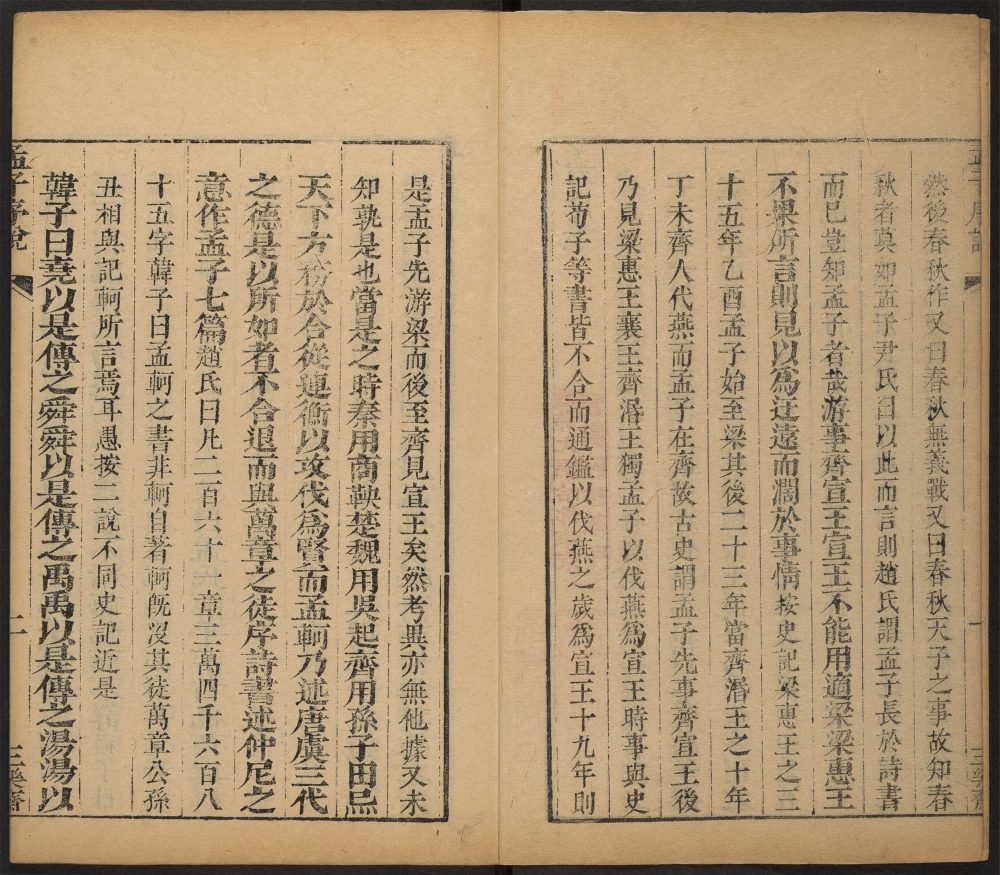 然後春秋作又曰春秋無義戰又曰春秋天子之事故知春
秋者莫如孟子尹氏曰以此而言則趙氏謂孟子長於詩書
而已豈知孟子者哉游事齊宣王宣王不能用適梁梁惠王
不果所言則見以爲迂遠而濶於事情按史記梁惠王之三
十五年乙酉孟子始至梁其後二十三年當齊湣王之十年
丁未齊人伐燕而孟子在齊故古史謂孟子先事齊宣王後
乃見梁惠王襄王齊湣王獨孟子以伐燕爲宣王時事與史
記荀子等書皆不合而通鑑以伐燕之歲爲宣王十九年則
是孟子先游梁而後至齊見宣王矣然考異亦無他據又未
知孰是也當是之時秦用商鞅楚魏用吳起齊用孫子田忌
天下方務於合從連衡以攻伐爲賢而孟軻乃述唐虞三代
之德是以所如者不合退而與萬章之徒序詩書述仲尼之
意作孟子七篇趙氏曰凡二百六十一章三萬四千六百八
十五字韓子曰孟軻之書非軻自著軻既沒其徒萬章公孫
丑相與記軻所言焉耳愚按二說不同史記近是
韓子曰堯以是傳之舜舜以是傳之禹禹以是傳之湯湯以
孟子序說
二
三樂齋